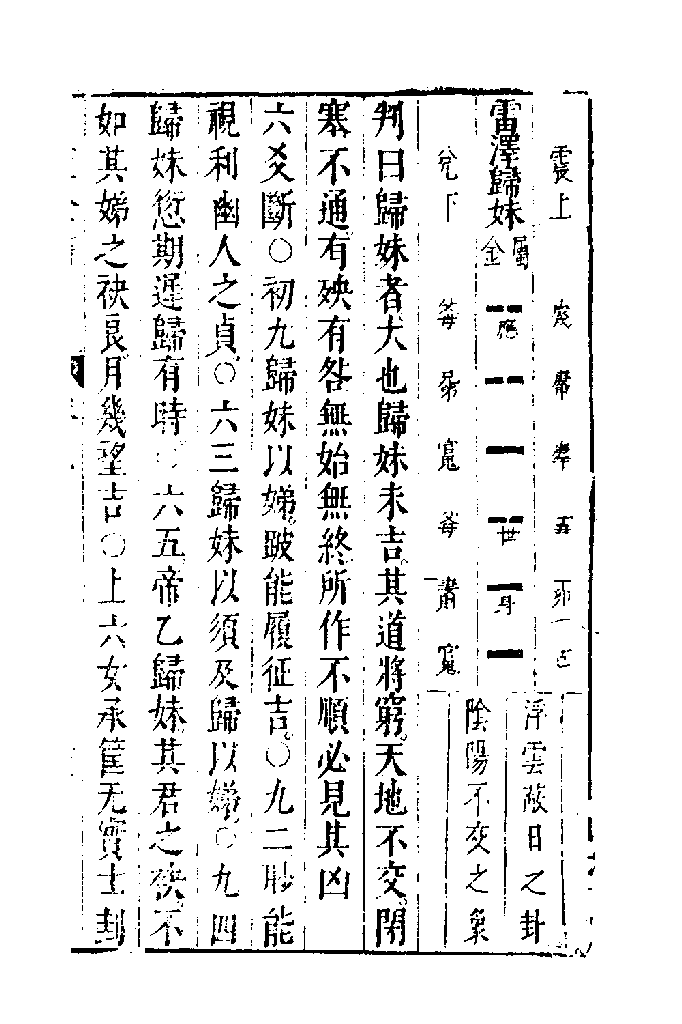 震上
浮雲蔽日之卦
雷澤歸妹 屬金
應
世
身
陰陽不交之象
兌下
判曰歸妹者大也歸妹未吉其道將窮天地不交閉
塞不通有殃有咎無始無終所作不順必見其凶
六爻斷○初九歸妹以娣跛能履征吉○九二眇能
視利幽人之貞○六三歸妹以須反歸以娣○九四
歸妹愆期遲歸有時○六五帝乙歸妹其君之袂不
如其娣之袂良月幾望吉○上六女承筐无實士刲